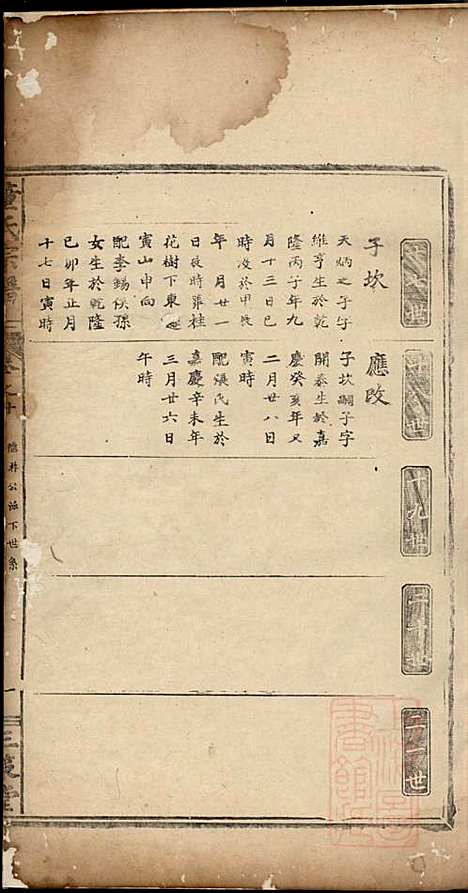 十七世
子坎
天炳之子字
維亨生於乾
隆丙子年九
月十三日巳
時没於甲戌
年 月廿一
日夜時葬桂
花樹下東
寅山申向
配李錫伙孫
女生於乾隆
己卯年正月
十七日寅時
十八世
應政
子坎嗣子字
開泰生於嘉
慶癸亥年又
二月廿八日
寅時
配張氏生於
嘉慶辛未年
三月廿六日
午時
十九世
二十世
二一世
氏宗譜
下世系
三
堂